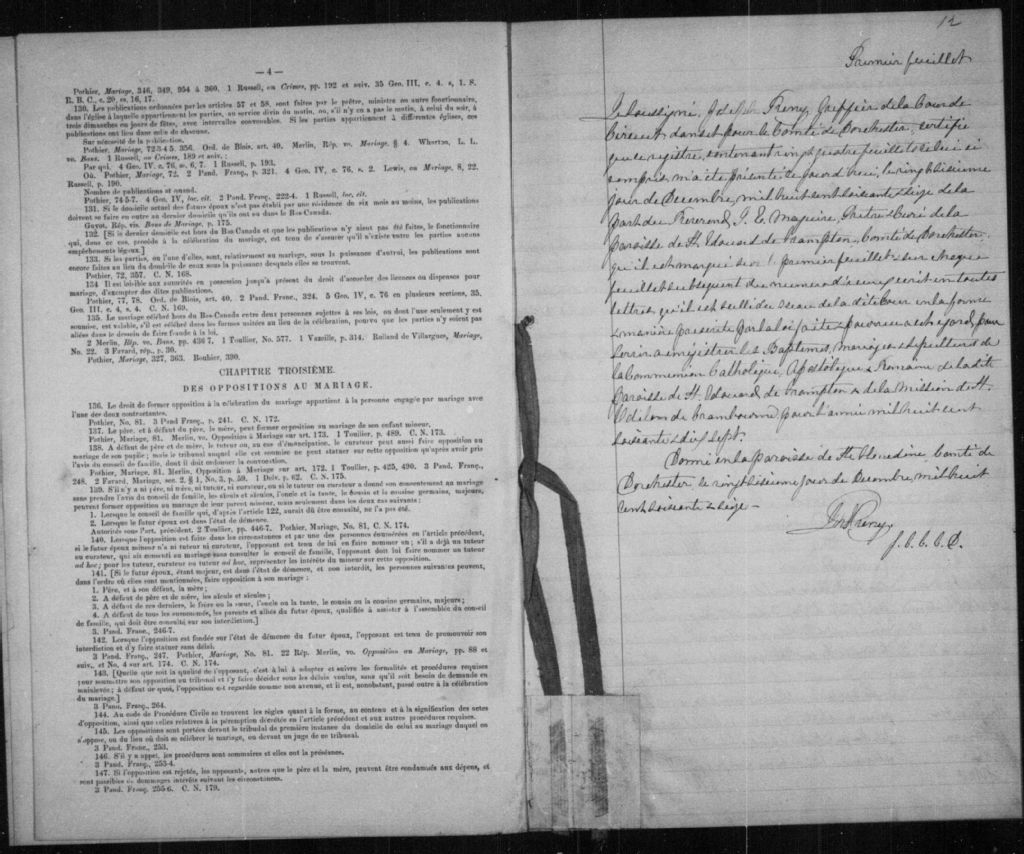 — 4 —
Pothier, Mariage, 346, 349, 954 à 360. 1 Russell, on Crimes, pp. 192 et suiv. 35 Geo. III, c. 4. s. 1. S.
R. B. C., c. 20, ss. 16, 17.
130. Les publications ordonnées par les articles 57 et 58, sont faites par le prêtre, ministre ou autre fonctionnaire,
dans l'église à laquelle appartiennent les parties, au service divin du matin, ou, s'il n'y en a pas le matin, à celui du soir, à
trois dimanches ou jours de fêtes, avec intervalles convenables. Si les parties appartiennent à différentes églises, ces
publications ont lieu dans celle de chacune.
Sur nécessité de la publication.
Pothier, Mariage, 72-3-4-5. 356. Ord. de Blois, art. 40. Merlin, Rép. vo. Mariage, § 4. Wharton, L. L.
vo. Bans. 1 Russell, on Crimes, 189 et suiv.:
Par qui. 4 Geo. IV, c. 76, ss. 6, 7. 1 Russell, p. 193.
Où. Pothier, Mariage, 72. 2 Pand. Franç., p. 321. 4 Geo. IV, c. 76, s. 2. Lewis, on Mariage, 8, 22.
Russell, p. 190.
Nombre de publications et quand.
Pothier, 74-5-7. 4 Geo. IV, loc. cit. 2 Pand. Franç., 222-4. 1 Russell, loc. cit.
131. Si le domicile actuel des futurs époux n'est pas établi par une résidence de six mois au moins, les publications
doivent se faire en outre au dernier domicile qu'ils ont eu dans le Bas-Canada.
Guyot, Rép. vis. Bans de Mariage, p. 175.
132. [Si le dernier domicile est hors du Bas-Canada et que les publications n'y aient pas été faites, le fonctionnaire
qui, dans ce cas, procède à la célébration du mariage, est tenu de s'assurer qu'il n'existe entre les parties aucuns
empêchements légaux.]
133. Si les parties, ou l'une d'elles, sont, relativement au mariage, sous la puissance d'autrui, les publications sont
encore faites au lieu du domicile de ceux sous la puissance desquels elles se trouvent.
Pothier, 72, 357. C. N. 168.
134 Il est loisible aux autorités en possession jusqu'à présent du droit d'accorder des licences ou dispenses pour
mariage, d'exempter des dites publications.
Pothier, 77, 78. Ord. de Blois, art. 40. 2 Pand. Franc., 324. 5 Geo. IV, c. 76 en plusieurs sections, 35.
Geo. III, c. 4, s. 4. C. N. 169.
135. Le mariage célébré hors du Bas-Canada entre deux personnes sujettes à ses lois, ou dont l'une seulement y est
soumise, est valable, s'il est célébré dans les formes usitées au lieu de la célébration, pourvu que les parties n'y soient pas
allées dans le dessein de faire fraude à la loi.
2 Merlin, Rép. vo. Bans, pp. 436-7. 1 Toullier, No. 577. 1 Vazeille, p. 314. Rolland de Villargues, Mariage,
No. 22. 3 Favard, rép., p. 30.
Pothier, Mariage, 327, 363. Bouhier, 390.
CHAPITRE TROISIÈME.
DES OPPOSITIONS AU MARIAGE.
136. Le droit de former opposition à la célébration du mariage appartient à la personne engagée par mariage avec
l'une des deux contractantes.
Pothier, No. 81. 3 Pand Franç., p. 241. C. N. 172.
137. Le père, et à défaut du père, la mère, peut former opposition au mariage de son enfant mineur.
Pothier, Mariage, 81. Merlin, vo. Opposition à Mariage sur art. 173. 1 Toullier, p. 489. C. N. 173.
138. A défaut de père et de mère, le tuteur ou, au cas d'émancipation, le curateur peut aussi faire opposition au
mariage de son pupille; mais le tribunal auquel elle est soumise ne peut statuer sur cette opposition qu'après avoir pris
l'avis du conseil de famille, dont il doit ordonner la convocation.
Pothier, Mariage, 81. Merlin, Opposition à Mariage sur art. 172. 1 Toullier, p. 425, 490. 3 Pand. Franç.,
248. 2 Favard, Mariage, sec. 2. § 1, No. 3, p. 59. 1 Delv. p. 62. C. N. 175.
139. S'il n'y a ni père, ni mère, ni tuteur, ni curateur, ou si le tuteur ou curateur a donné son consentement au mariage
sans prendre l'avis du conseil de famille, les aïeuls et aïeules, l'oncle et la tante, le cousin et la cousine germains, majeurs,
peuvent former opposition au mariage de leur parent mineur, mais seulement dans les deux cas suivants:
1. Lorsque le conseil de famille qui, d'après l'article 122, aurait dû être consulté, ne l'a pas été.
2. Lorsque le futur époux est dans l'état de démence.
Autorités sous l'art. précédent. 2 Toullier, pp. 446-7. Pothier, Mariage, No. 81, C. N. 174.
140. Lorsque l'opposition est faite dans les circonstances et par une des personnes énumérées en l'article précédent,
si le futur époux mineur n'a ni tuteur ni curateur, l'opposant est tenu de lui en faire nommer un; s'il a déjà un tuteur
ou curateur, qui ait consenti au mariage sans consulter le conseil de famille, l'opposant doit lui faire nommer un tuteur
ad hoc; pour les tuteur, curateur ou tuteur ad hoc, représenter les intérêts du mineur sur cette opposition.
141. [Si le futur époux, étant majeur, est dans l'état de démence, et non interdit, les personnes suivantes peuvent,
dans l'ordre où elles sont mentionnées, faire opposition à son mariage:
1. Père, et à son défaut, la mère;
2. A défaut de père et de mère, les aïeuls et aïeules;
3. A défaut de ces derniers, le frère ou la sœur, l'oncle ou la tante, le cousin ou la cousine germains, majeurs;
4. A défaut de tous les susnommés, les parents et alliés du futur époux, qualifiés à assister à l'assemblée du conseil
de famille, qui doit être consulté sur son interdiction.]
3. Pand. Franc., 246-7.
142. Lorsque l'opposition est fondée sur l'état de démence du futur époux, l'opposant est tenu de promouvoir son
interdiction et d'y faire statuer sans délai.
3 Pand. Franç., 247. Pothier, Mariage, No. 81. 22 Rép. Merlin, vo. Opposition au Mariage, pp. 88 et
suiv., et No. 4 sur art. 174. C. N. 174.
143. [Quelle que soit la qualité de l'opposant, c'est à lui à adopter et suivre les formalités et procédures requises
pour soumettre son opposition au tribunal et l'y faire décider sous les délais voulus, sans qu'il soit besoin de demande en
mainlevée; à défaut de quoi, l'opposition est regardée comme non avenue, et il est, nonobstant, passé outre à la célébration
du mariage.]
3 Pand. Franç., 264.
144. Au code de Procédure Civile se trouvent les règles quant à la forme, au contenu et à la signification des actes
d'opposition, ainsi que celles relatives à la péremption décrétée en l'article précédent et aux autres procédures requises.
145. Les oppositions sont portées devant le tribunal de première instance du domicile de celui au mariage duquel on
s'oppose, ou du lieu où doit se célébrer le mariage, ou devant un juge de ce tribunal.
3 Pand. Franc., 253.
146. S'il y a appel, les procédures sont sommaires et elles ont la préséance.
3 Pand. Franç., 253-4.
147. Si l'opposition est rejetée, les opposants, autres que le père et la mère, peuvent être condamnés aux dépens, et
sont passibles de dommages-intérêts suivant les circonstances.
3 Pand. Franç. 255-6. C. N. 179.
12
Premier feuillet
Je soussigné, Joseph Freny, Greffier de la Cour de
Circuit dans et pour le Comté de Dorchester, certifie
que ce registre, contenant vingt quatre feuillets celui ci
compris, m'a été présenté ce jourd'hui, le vingt sixième
jour de Décembre, mil huit cent soixante & seize de la
part du Révérend J. E. Maguire, Prêtre & Curé de la
Paroisse de St. Edouard de Frampton, Comté de Dorchester,
qu'il est marqué sur le premier feuillet & sur chaque
feuillet subséquent du numéro d'icelui écrit en toutes
lettres, qu'il est scellé du sceau de la dite Cour en la forme
& manière prescrite par la loi faite & pourvue à cet égard, pour
servir à enrégistrer les Baptêmes, Mariages & Sépultures de
la Communion Catholique, Apostolique & Romaine de la dite
Paroisse de St. Edouard de Frampton & de la Mission de St.
Odilon de Cranbourne, pour l'année mil huit cent
soixante & dix sept.
Donné en la paroisse de Ste. Hénédine Comté de
Dorchester le vingt sixième jour de Décembre, mil huit
cent soixante & seize —
Jos Freny
G. C. C. C. D.